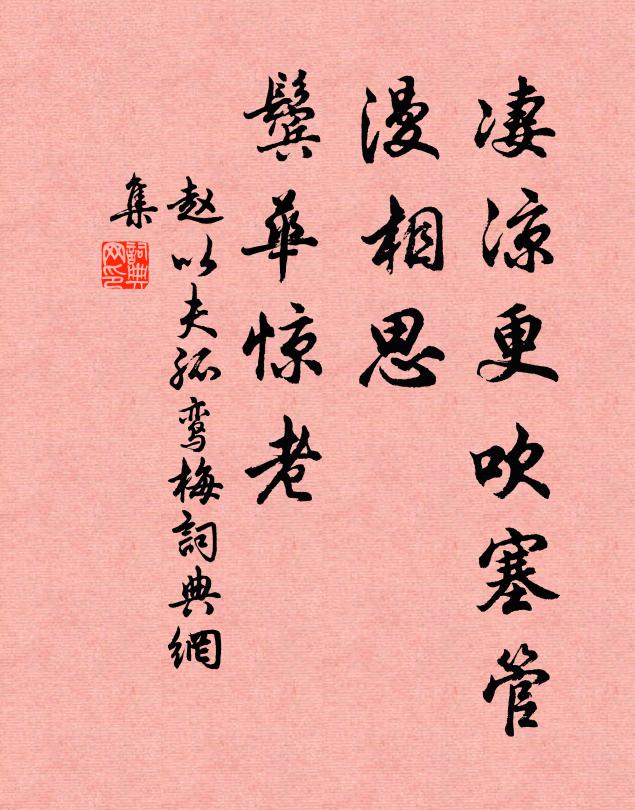 凄凉更吹塞管
漫相思
鬓华惊老
赵以夫孤鸾梅詞典網
集
詞典
网印